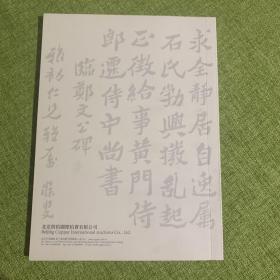 求全靜居自逸属
石氏勃興撥亂起
正徵給事黃門侍
郎遷侍中尚書
臨鄭文公碑
仁兄雅屬
國際拍賣有限公司
Beijing Copper International Auctions Co., Ltd.